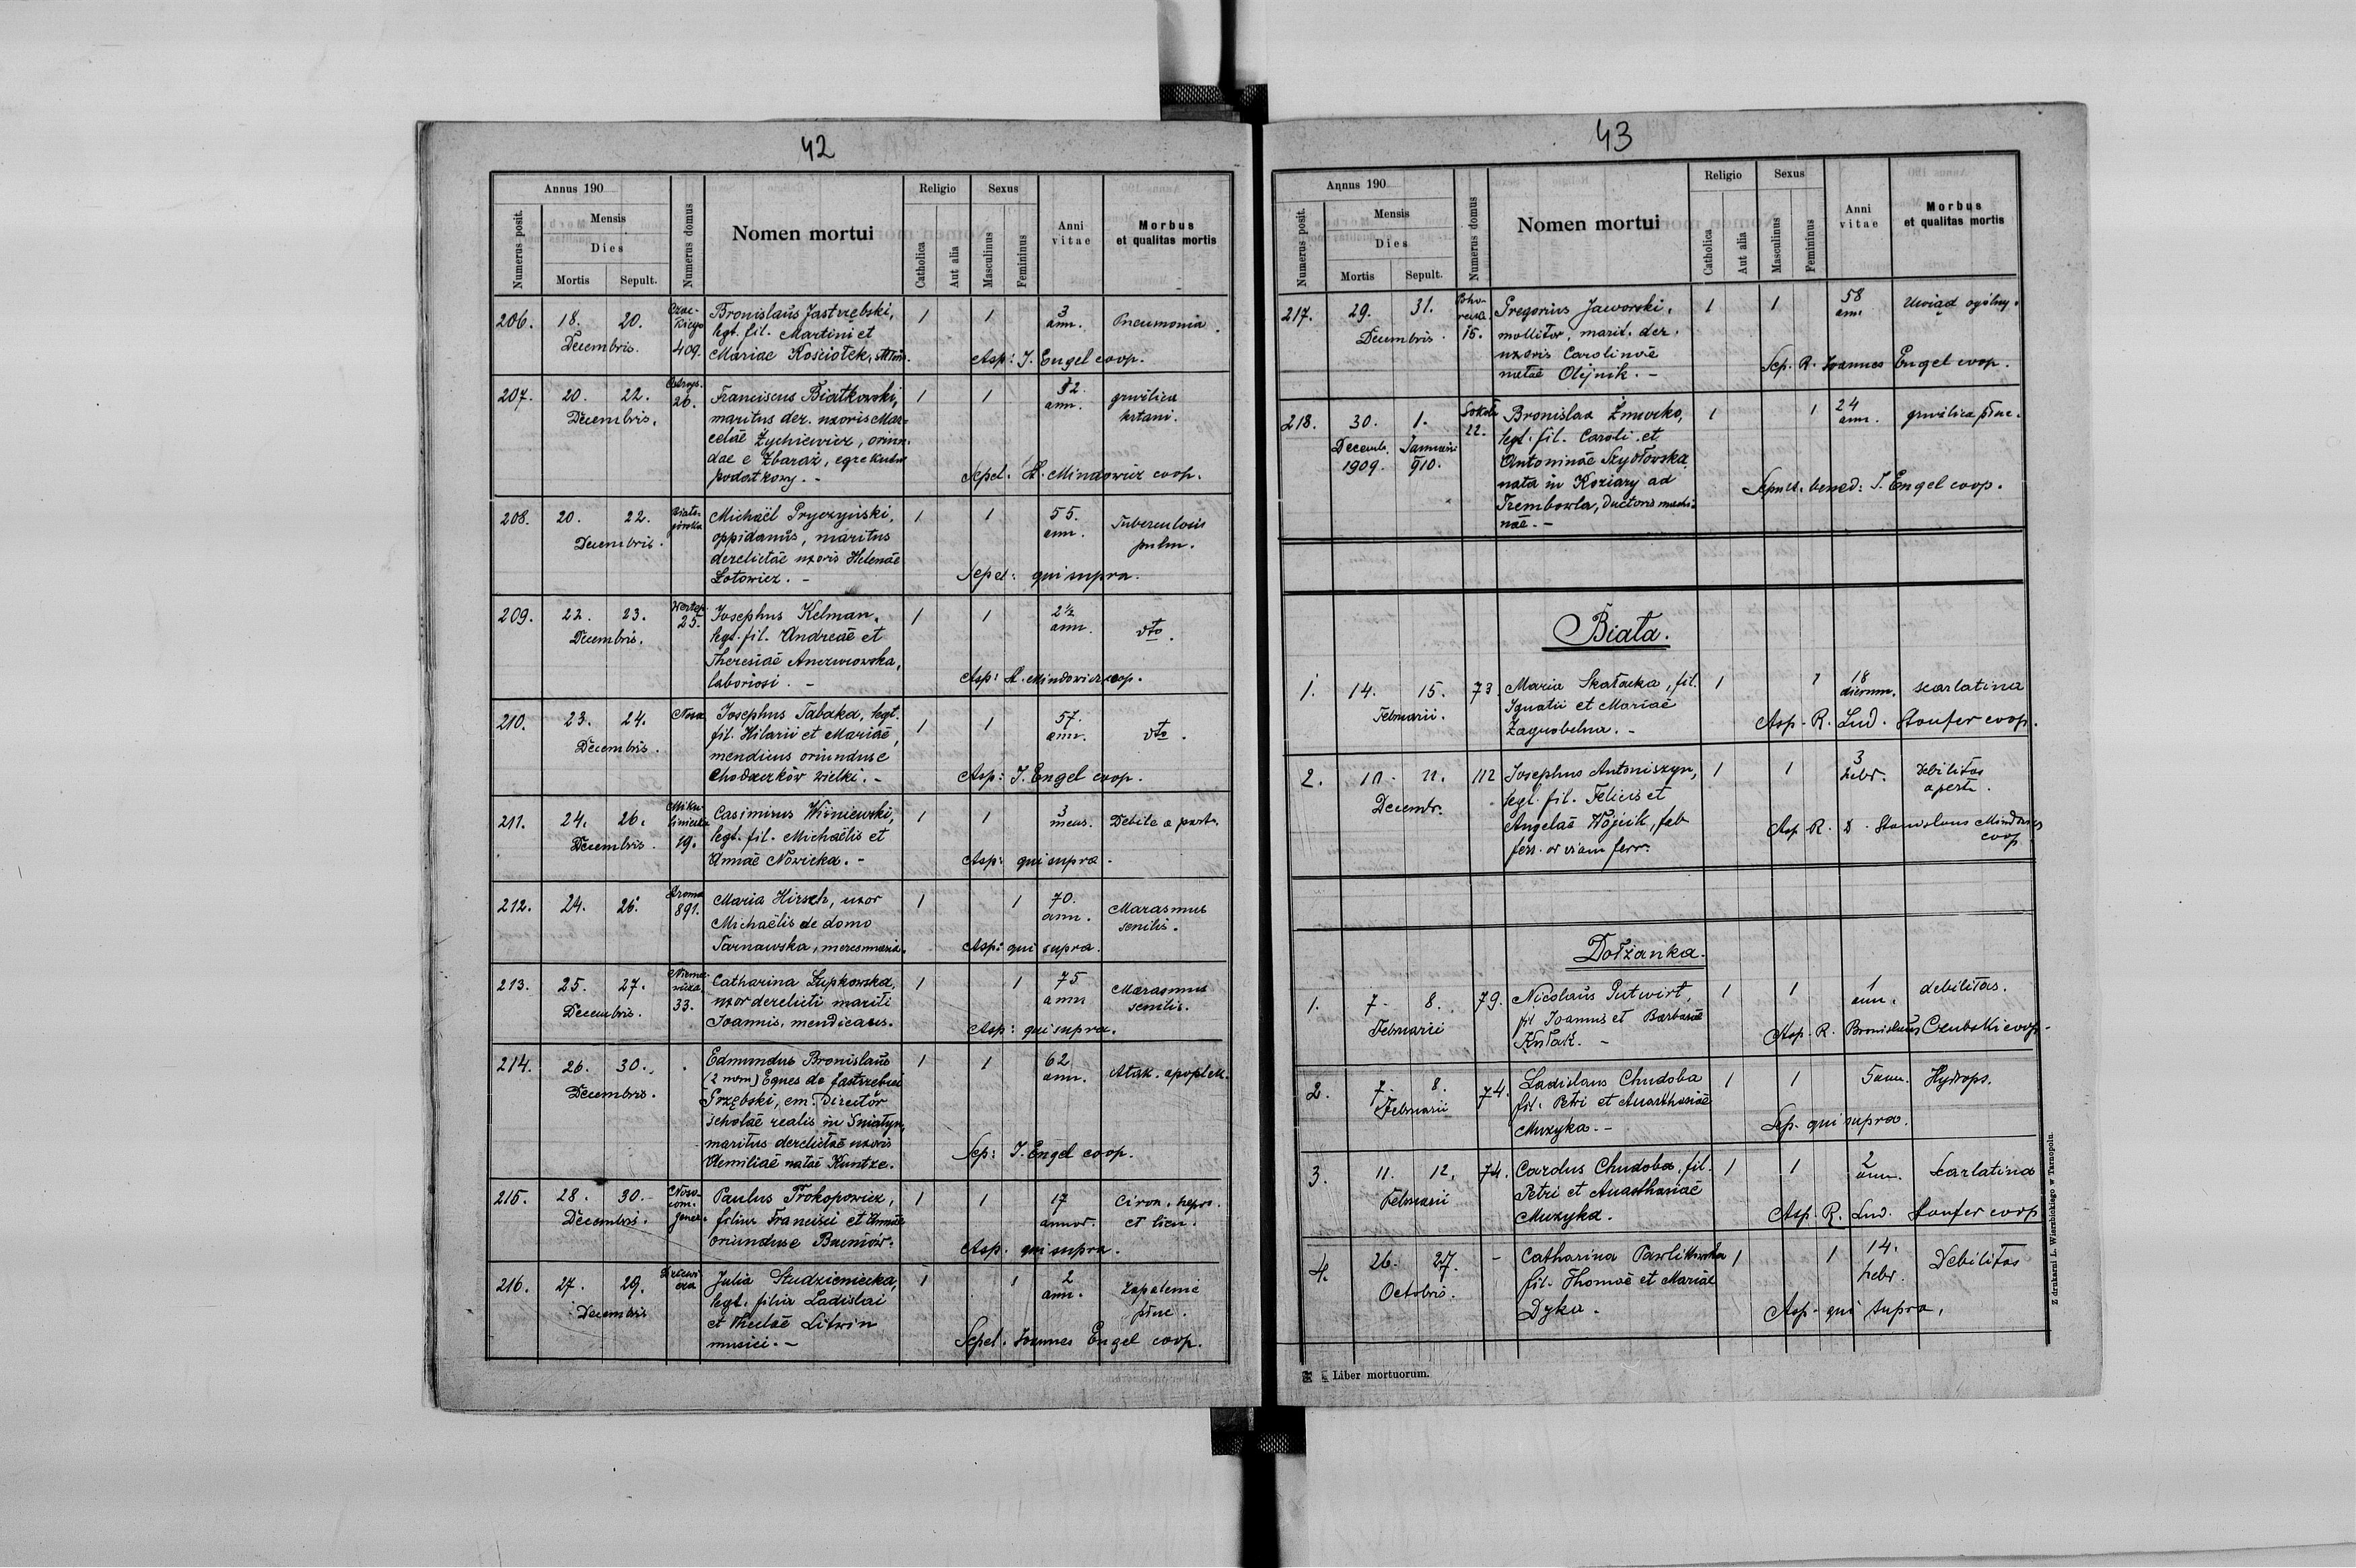 42
Annus 190
Numerus posit.
Mensis
Dies
Mortis
Sepult.
Numerus domus
Nomen mortui
Religio
Catholica
Aut alia
Sexus
Masculinus
Femininus
Anni vitae
Morbus et qualitas mortis
206. 18. 20. Czac- Bronislaus Jastrzębski, 1 1 3 Pneumonia.
Decembris. kiego legt. fil. Martini et ann.
409. Mariae Kościołek, Asp: J. Engel coop.
207. 20. 22. 26. Franciscus Białkowski, 1 1 ann. gruźlica
Decembris. maritus der. uxoris Mar- krtani.
celae Żychiewicz, oriun-
dae e Zbaraż, egzekutor
podatkowy. - Sepel. St. Mindowicz coop.
208. 20. 22. Michaël Pryczyński, 1 1 55. Tuberculosis
Decembris. oppidanus, maritus ann. pulm.
derelictae uxoris Helenae
Łotowicz. - Sepel: qui supra.
209. 22. 23. Josephus Kelman, 1 1 2½ dto.
Decembris. 25. legt. fil. Andreae et ann.
Theresiae
laboriosi. - Asp: St. Mindowicz coop.
210. 23. 24. Nowa Josephus Tabaka, legt. 1 1 57. dto.
Decembris. fil. Hilarii et Mariae, ann.
mendicus oriundus e
Chodaczków wielki. - Asp: J. Engel coop.
211. 24. 26. Miku- Casimirus Wiśniewski, 1 1 3 Debile a partu.
Decembris. liniecka legt. fil. Michaëlis et mens.
19. Annae Nowicka. - Asp: qui supra.
212. 24. 26. 891. Maria Hirsch, uxor 1 1 70. Marasmus
Michaëlis de domo ann. senilis.
Tarnawska, Asp: qui supra.
213. 25. 27. Niemce- Catharina Łupkowska, 1 1 75 Marasmus
Decembris. wicza. uxor derelicti mariti ann senilis.
33. Joannis, mendicans. Asp: qui supra.
214. 26. 30. Edmundus Bronislaus 1 1 62 Atak. apoplek.
Decembris. (2 nom) Eques de Jastrzebiec ann.
Grzębski, em. Director
scholae realis in Sniatyn,
maritus derelictae uxoris
Aemiliae natae Kuntze. Sep: J. Engel coop.
215. 28. 30. Paulus Prokopowicz, 1 1 17 Ciroz. hepat.
Decembris. filius Francisci et Annae annor. et lien.
oriundus e Asp. qui supra.
216. 27. 29. Julia Studzieniecka, 1 1 2 Zapalenie
Decembris legt. filia Ladislai ann. płuc.
et Theclae Litwin
musici. - Sepel. Joannes Engel coop.
43
Annus 190
Numerus posit.
Mensis
Dies
Mortis
Sepult.
Numerus domus
Nomen mortui
Religio
Catholica
Aut alia
Sexus
Masculinus
Femininus
Anni vitae
Morbus et qualitas mortis
217. 29. 31. Gregorius Jaworski, 1 1 58 Uwiąd ogólny.
Decembris. 15. mollitor, marit. der. ann.
uxoris Carolinae
natae Olijnik. - Sep. R. Joannes Engel coop.
218. 30. 1. Bronislaa Żmurko, 1 1 24 gruźlica płuc.
Decemb. Januarii 22. legt. fil. Caroli et ann.
1909. 910. Antoninae Szydłowska,
nata in Koziary ad Sepult. bened: J. Engel coop.
Trembowla, ductoris machi-
nae. -
Biała.
1. 14. 15. 73. Maria Skałacka, fil. 1 1 18 scarlatina
Februarii. Ignatii et Mariae dierum.
Zagrobelna. - Asp. R. Lud. Stoufer coop.
2. 11. 112 Josephus Antoniszyn, 1 1 3 Debilitas
Decembr. legt. fil. Felicis et hebr. a part.
Angelae Wójcik, Asp. R. D. Stanislaus Mindowicz
viam ferr. coop
Dołżanka.
1. 7. 8. 79. Nicolaus Putwirt, 1 1 1 debilitas.
Februarii fil Joannis et Barbarae ann.
Kułak. - Asp. R. Bronislaus Czubski coop.
2. 7. 8. 74. Ladislaus Chudoba 1 1 5 ann. Hydrops.
Februarii fil. Petri et Anasthasiae
Muzyka. - Sep. qui supra.
3. 11. 12. 74. Carolus Chudoba, fil. 1 1 2 Scarlatina
Februarii Petri et Anasthasiae ann.
Muzyka. Asp. R. Lud. Stoufer coop
4. 26. 27. - Catharina Pawlikowska 1 1 14. Debilitas
Octobris. fil. Thomae et Mariae hebr.
Dyka. Asp. qui supra.
Liber mortuorum.
Z drukarni L. Wierzbickiego w Tarnopolu.